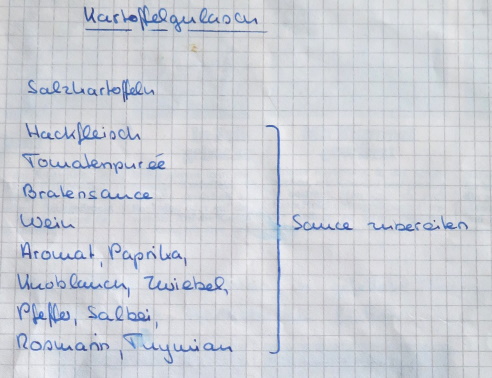 Kartoffelgulasch
Salzkartoffeln
Hackfleisch
Tomatenpurée
Bratensauce
Wein
Sauce zubereiten
Aromat, Paprika,
Knoblauch, Zwiebel,
Pfeffer, Salbei,
Rosmarin, Thymian